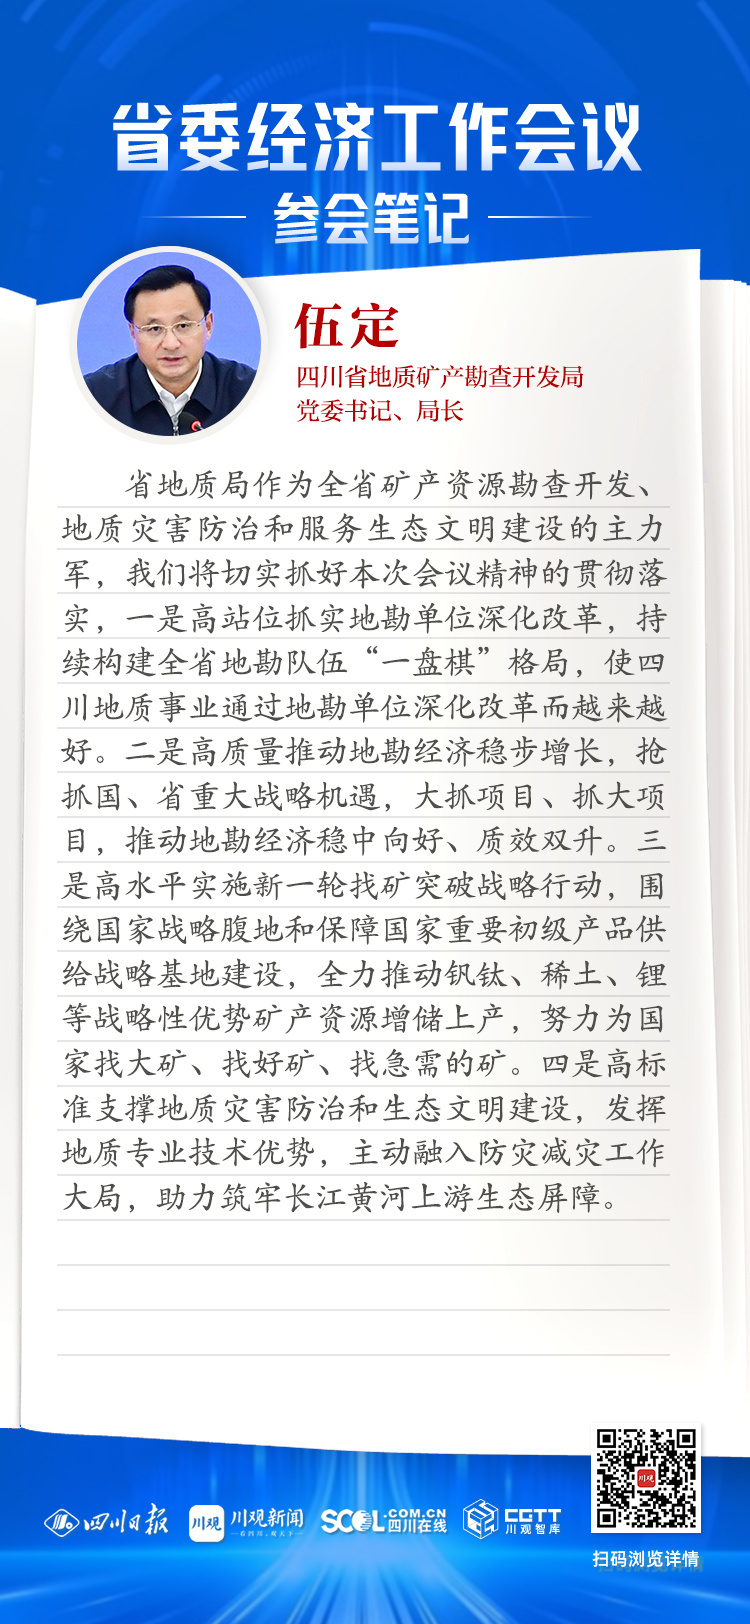 省委经济工作会议
参会笔记
伍定
四川省地质矿产勘查开发局
党委书记、局长
省地质局作为全省矿产资源勘查开发、
地质灾害防治和服务生态文明建设的主力
军，我们将切实抓好本次会议精神的贯彻落
实，一是高站位抓实地勘单位深化改革，持
续构建全省地勘队伍“一盘棋”格局，使四
川地质事业通过地勘单位深化改革而越来越
好。二是高质量推动地勘经济稳步增长，抢
抓国、省重大战略机遇，大抓项目、抓大项
目，推动地勘经济稳中向好、质效双升。三
是高水平实施新一轮找矿突破战略行动，围
绕国家战略腹地和保障国家重要初级产品供
给战略基地建设，全力推动钒钛、稀土、锂
等战略性优势矿产资源增储上产，努力为国
家找大矿、找好矿、找急需的矿。四是高标
准支撑地质灾害防治和生态文明建设，发挥
地质专业技术优势，主动融入防灾减灾工作
大局，助力筑牢长江黄河上游生态屏障。
川观
四川日报
川观
川观新闻
SCOL.COM.CN
四川在线
CGTT
川观智库
扫码浏览详情